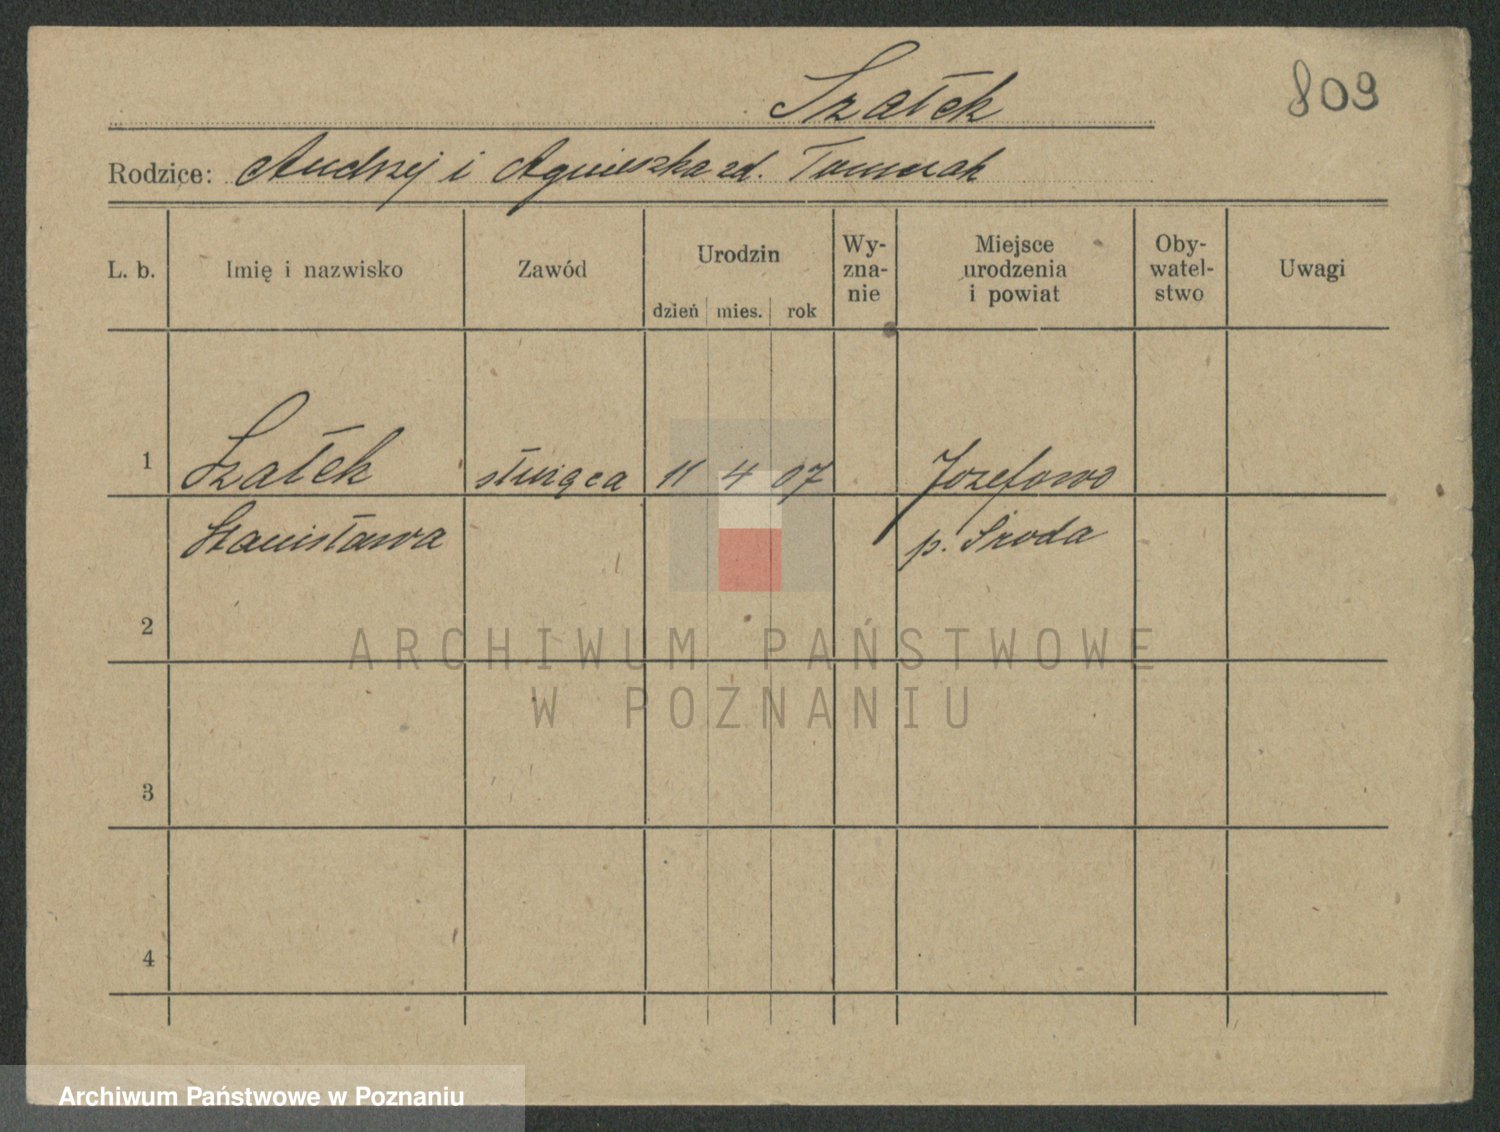 809
Szałek
Rodzice: Andrzej i Agnieszka zd. Tomczak
L. b. Imię i nazwisko Zawód Urodzin dzień mies. rok Wy-zna-nie Miejsce urodzenia i powiat Oby-watel-stwo Uwagi
1 Szałek służąca 11 4 07 Józefowo
Stanisława p. Środa
2
3
4
ARCHIWUM PAŃSTWOWE
W POZNANIU
Archiwum Państwowe w Poznaniu